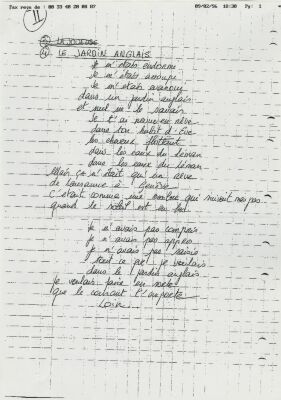 Fax reçu de : 00 33 48 28 08 87 09/02/96 18:30 Pg: 1
11
LA JOUEUSE
④ LE JARDIN ANGLAIS
Je m'étais endormi
Je m'étais assoupi
Je m'étais évanoui
dans un jardin anglais
et nul ne le savait
Je t'ai revue en rêve
dans ton habit d'Eve
tes cheveux flottaient
dans les eaux du Léman
dans les eaux du Léman
Mais ça n'était qu'un rêve
de Lausanne à Genève
C'était comme une ombre qui suivait mes pas
quand le soleil est au bas
Je n'avais pas compris
Je n'avais pas appris
Je n'avais pas saisi
tout ce que je voulais
dans le jardin anglais
Je voulais faire en sorte
que le courant l'emporte
Loin